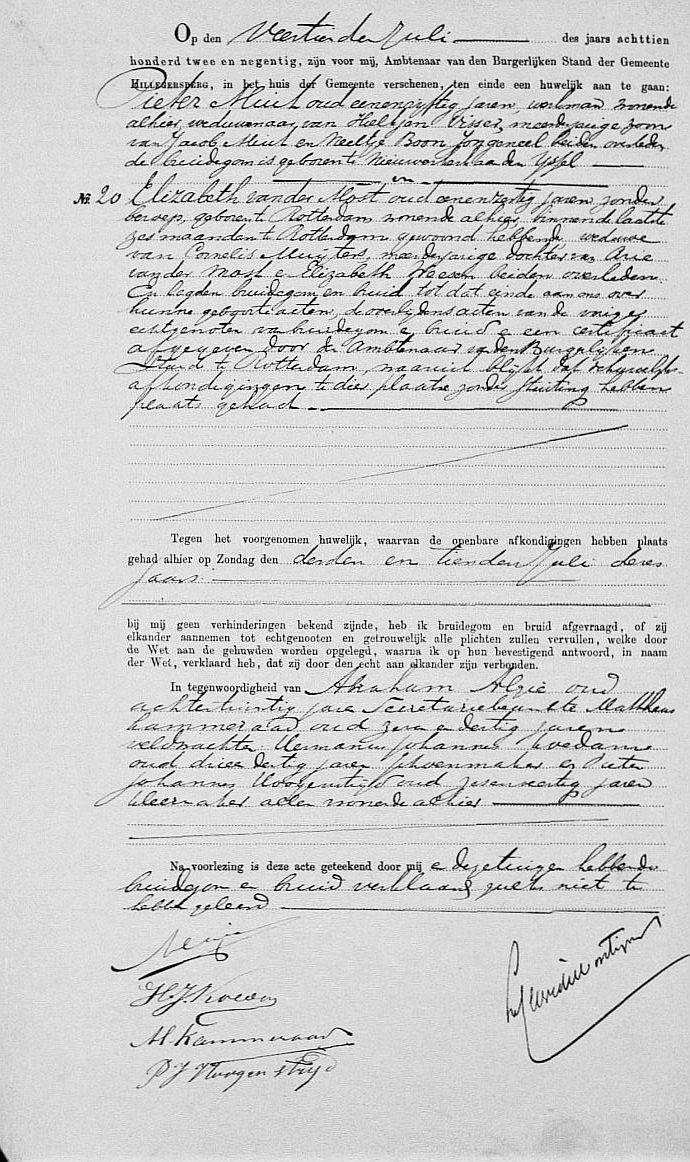 Op den Veertienden Juli des jaars achttien
honderd twee en negentig, zijn voor mij, Ambtenaar van den Burgerlijken Stand der Gemeente
HILLEGERSBERG, in het huis der Gemeente verschenen, ten einde een huwelijk aan te gaan:
Pieter Muit oud eenenvijftig jaren, werkman wonende
alhier, weduwenaar van Visser, meerderjarige zoon
van Jacob Muit en Neeltje Boon Jongeneel beiden overleden
de bruidegom is geboren te Nieuwerkerk aan den Yssel
en
No. 20 Elizabeth van der Most oud eenenzestig jaren zonder
beroep, geboren te Rotterdam wonende alhier, binnen de laatste
zes maanden te Rotterdam gewoond hebbende, weduwe
van Cornelis Muijters, meerderjarige dochter van Arie
van der Most e Elizabeth beiden overleden.
En legden bruidegom en bruid tot dat einde aan ons over
hunne geboorteacten, de overlijdensacten van de vorige
echtgenoten van bruidegom e bruid e een certificaat
afgegeven door den Ambtenaar vd den Burgerlijken
Stand te Rotterdam, waaruit blijkt dat de huwelijks
afkondigingen te dier plaatse zonder stuiting hebben
plaats gehad.
Tegen het voorgenomen huwelijk, waarvan de openbare afkondigingen hebben plaats
gehad alhier op Zondag den derden en tienden Juli dezes
jaars
bij mij geen verhinderingen bekend zijnde, heb ik bruidegom en bruid afgevraagd, of zij
elkander aannemen tot echtgenooten en getrouwelijk alle plichten zullen vervullen, welke door
de Wet aan de gehuwden worden opgelegd, waarna ik op hun bevestigend antwoord, in naam
der Wet, verklaard heb, dat zij door den echt aan elkander zijn verbonden.
In tegenwoordigheid van Abraham Alzie oud
achtentwintig jare Secretariebeambte Mattheus
Kammeraad oud zeven e dertig jaren
veldwachter Hermanus Johannes Koedam
oud drieendertig jaren schoenmaker e Pieter
Johannes Hoogenstrijd oud zesenveertig jaren
kleermaker allen wonende alhier
Na voorlezing is deze acte geteekend door mij e de getuigen hebbende
bruidegom e bruid verklaard zulks niet te
hebben geleerd
H. J. Koedam
M. Kammeraad
P J Hoogenstrijd